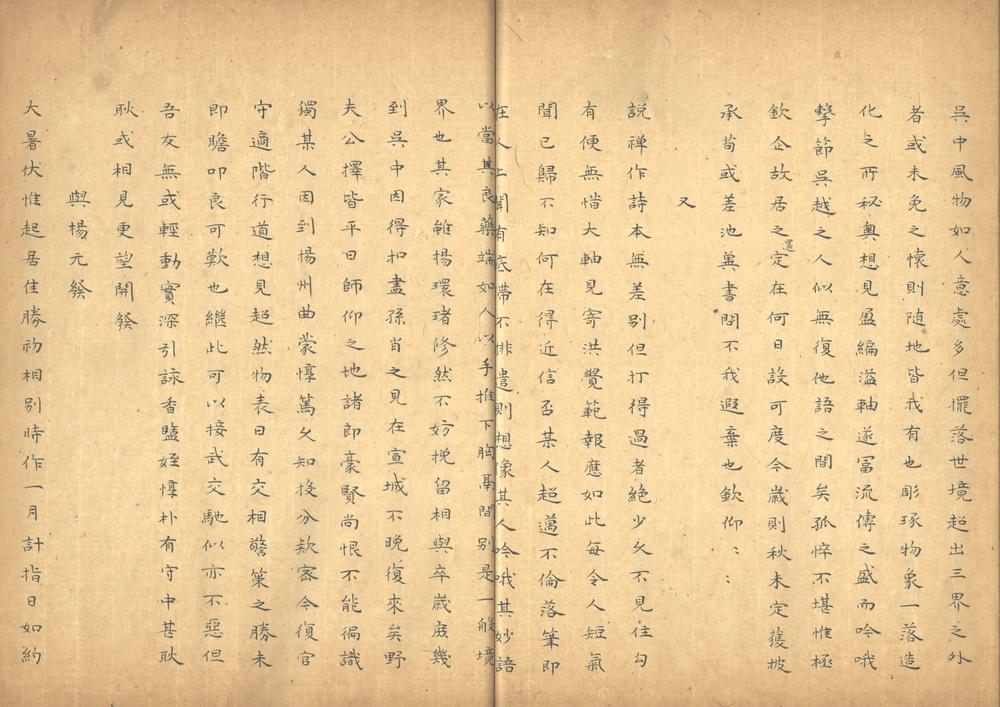 呉中風物如人意處多但擺落世境超出三界之外
者或未免之懐則随地皆我有也彫琢物象一落造
化之所秘奥想見盈編溢軸遂冨流傳之盛而吟哦
擊節呉越之人似無復他語之間矣孤悴不堪惟極
欽企故居之還定在何日設可度今歳則秋未定獲披
承苟或差池兾書問不我遐棄也欽仰〻〻
又
説禅作詩本無差別但打得過者絶少久不見住勾
有便無惜大軸見寄洪覺範報應如此每令人短氣
聞已歸不知何在得近信否某人超邁不倫落筆即
在人上聞有底滞不排遣則想像其人吟哦其妙語
以當其良藥端如人以手推下胸鬲間別是一般境
界也其家雖揚環珺修然不妨挽留相與卒歳庻幾
到呉中因得扣盡孫肖之見在宣城不晩復來矣野
夫公擇皆平日師仰之地諸郎豪賢尚恨不能徧識
獨某人因到揚州曲蒙惇篤久知投分欵宻今復官
守適階行道想見超然物表日有交相警策之勝未
即瞻叩良可歎也継此可以接武交馳似亦不惡但
吾友無或輕動實深引詠香鹽姪惇朴有守中甚耿
耿或相見更望開發
與楊元發
大暑伏惟起居佳勝初相別時作一月計指日如約